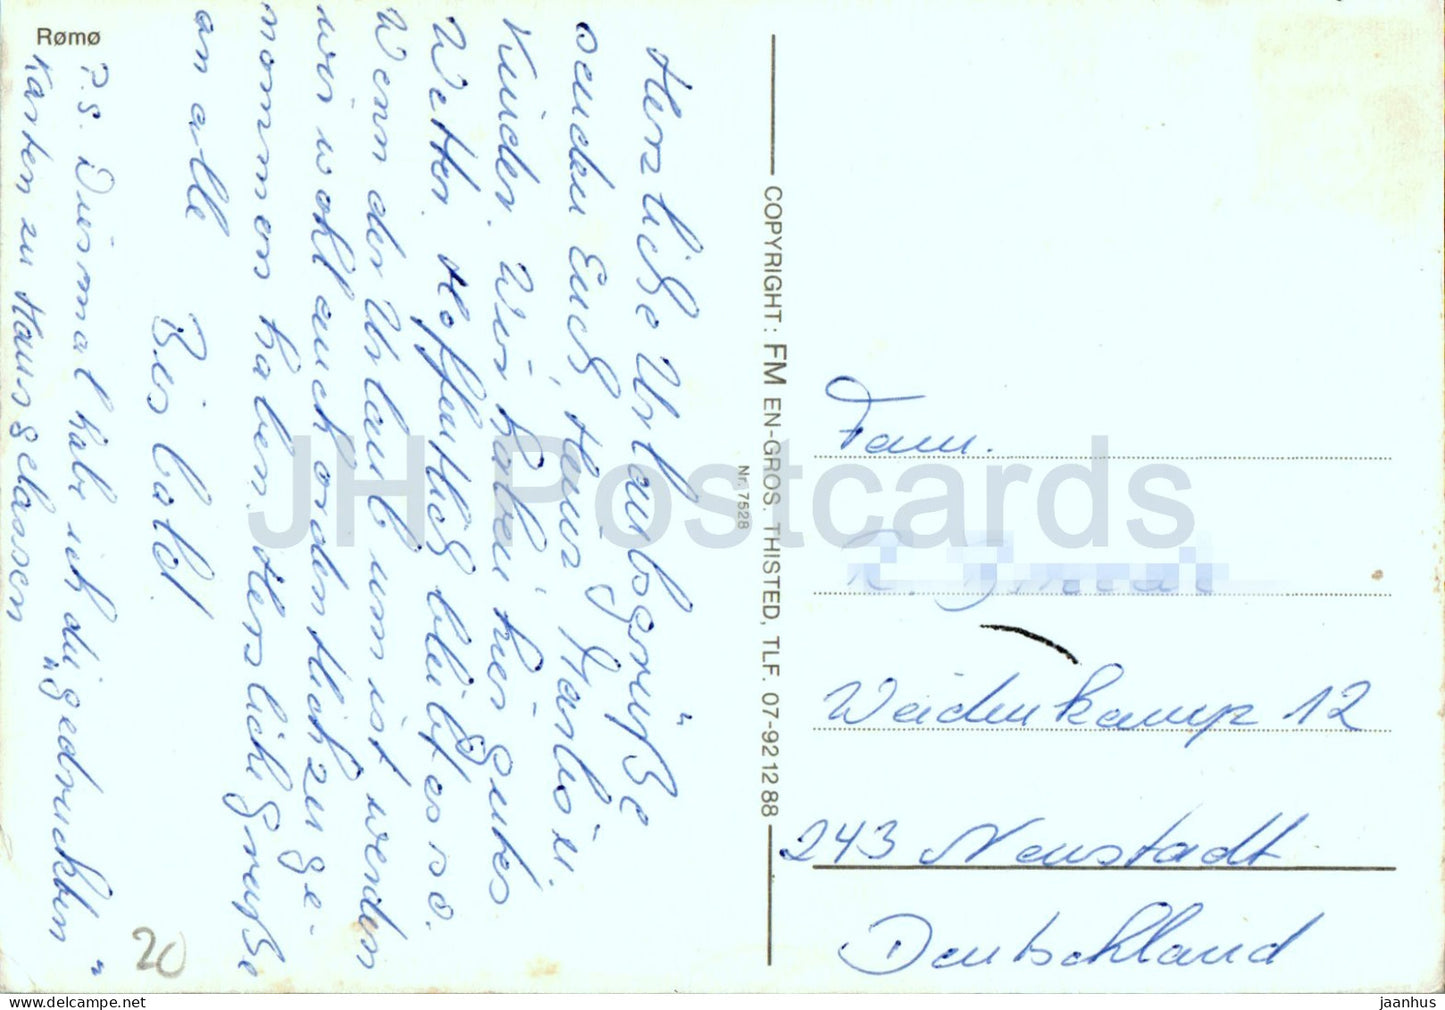 Rømø
Herzliche Urlaubsgrüße
senden Euch, Hans,
Kinder. Wir haben hier gutes
Wetter. Hoffentlich bleibt es so.
Wenn der Urlaub um ist werden
wir wohl auch ordentlich zuge-
nommen haben. Herzliche Grüße
an alle
Bis bald!
P.S. Diesmal habe ich die „gedruckten“
Karten zu Haus gelassen
20
COPYRIGHT: FM EN-GROS. THISTED, TLF. 07-92 12 88
Nr. 7528
Fam.
Weidenkamp 12
243 Neustadt
Deutschland
JH Postcards
jaanhus / HipPostcard.com